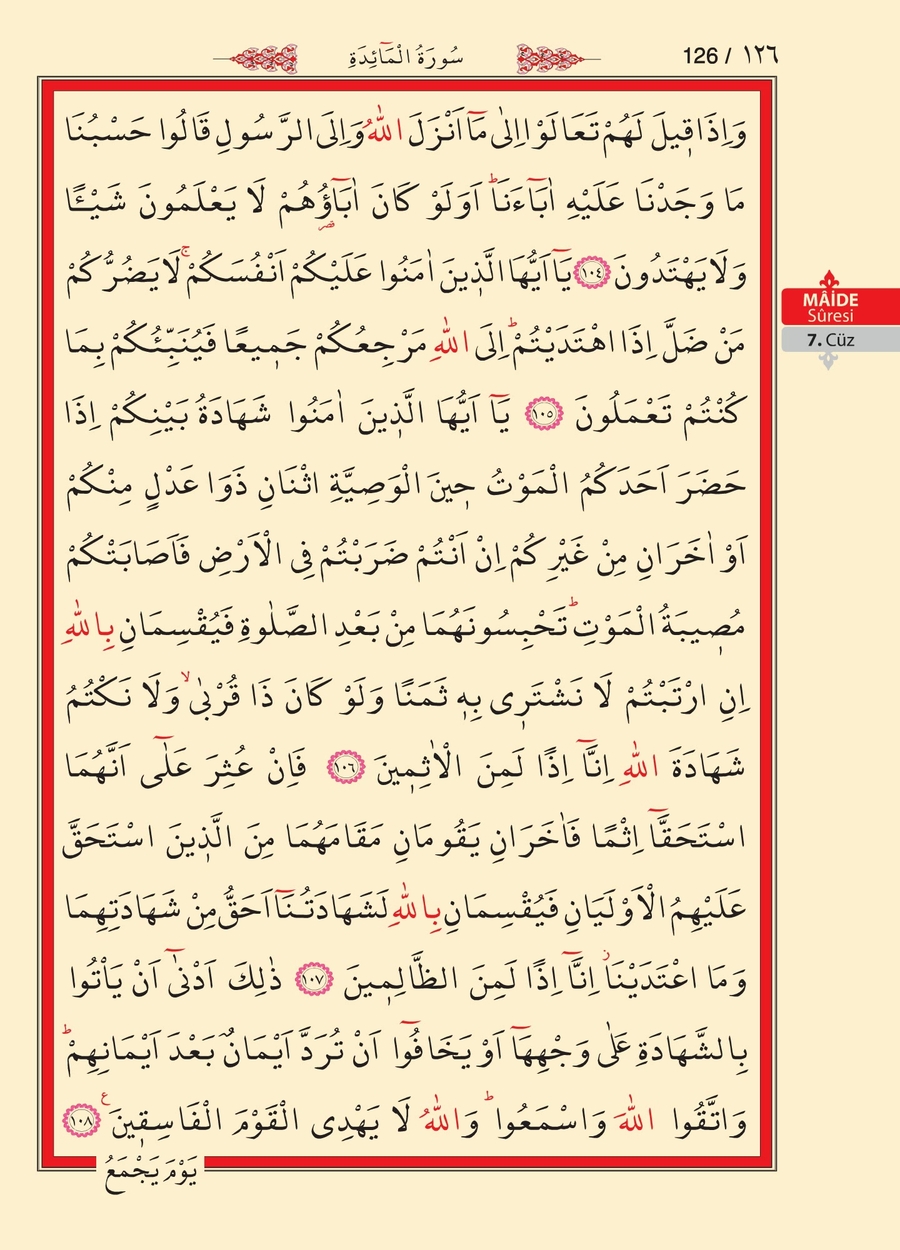 سُورَةُ الْمَٓائِدَةِ
126 / ١٢٦
وَاِذَا ق۪يلَ لَهُمْ تَعَالَوْا اِلٰى مَٓا اَنْزَلَ اللّٰهُ وَاِلَى الرَّسُولِ قَالُوا حَسْبُنَا
مَا وَجَدْنَا عَلَيْهِ اٰبَٓاءَنَاۜ اَوَلَوْ كَانَ اٰبَٓاؤُ۬هُمْ لَا يَعْلَمُونَ شَيْـًٔا
وَلَا يَهْتَدُونَ ﴿١٠٤﴾ يَٓا اَيُّهَا الَّذ۪ينَ اٰمَنُوا عَلَيْكُمْ اَنْفُسَكُمْۚ لَا يَضُرُّكُمْ
مَنْ ضَلَّ اِذَا اهْتَدَيْتُمْۜ اِلَى اللّٰهِ مَرْجِعُكُمْ جَم۪يعًا فَيُنَبِّئُكُمْ بِمَا
كُنْتُمْ تَعْمَلُونَ ﴿١٠٥﴾ يَٓا اَيُّهَا الَّذ۪ينَ اٰمَنُوا شَهَادَةُ بَيْنِكُمْ اِذَا
حَضَرَ اَحَدَكُمُ الْمَوْتُ ح۪ينَ الْوَصِيَّةِ اثْنَانِ ذَوَا عَدْلٍ مِنْكُمْ
اَوْ اٰخَرَانِ مِنْ غَيْرِكُمْ اِنْ اَنْتُمْ ضَرَبْتُمْ فِي الْاَرْضِ فَاَصَابَتْكُمْ
مُص۪يبَةُ الْمَوْتِۜ تَحْبِسُونَهُمَا مِنْ بَعْدِ الصَّلٰوةِ فَيُقْسِمَانِ بِاللّٰهِ
اِنِ ارْتَبْتُمْ لَا نَشْتَر۪ي بِه۪ ثَمَنًا وَلَوْ كَانَ ذَا قُرْبٰىۙ وَلَا نَكْتُمُ
شَهَادَةَ اللّٰهِ اِنَّٓا اِذًا لَمِنَ الْاٰثِم۪ينَ ﴿١٠٦﴾ فَاِنْ عُثِرَ عَلٰٓى اَنَّهُمَا
اسْتَحَقَّٓا اِثْمًا فَاٰخَرَانِ يَقُومَانِ مَقَامَهُمَا مِنَ الَّذ۪ينَ اسْتَحَقَّ
عَلَيْهِمُ الْاَوْلَيَانِ فَيُقْسِمَانِ بِاللّٰهِ لَشَهَادَتُنَٓا اَحَقُّ مِنْ شَهَادَتِهِمَا
وَمَا اعْتَدَيْنَاۘ اِنَّٓا اِذًا لَمِنَ الظَّالِم۪ينَ ﴿١٠٧﴾ ذٰلِكَ اَدْنٰٓى اَنْ يَأْتُوا
بِالشَّهَادَةِ عَلٰى وَجْهِهَٓا اَوْ يَخَافُٓوا اَنْ تُرَدَّ اَيْمَانٌ بَعْدَ اَيْمَانِهِمْۜ
وَاتَّقُوا اللّٰهَ وَاسْمَعُواۜ وَاللّٰهُ لَا يَهْدِي الْقَوْمَ الْفَاسِق۪ينَ۟ ﴿١٠٨﴾
يَوْمَ يَجْمَعُ
MÂİDE
Sûresi
7. Cüz